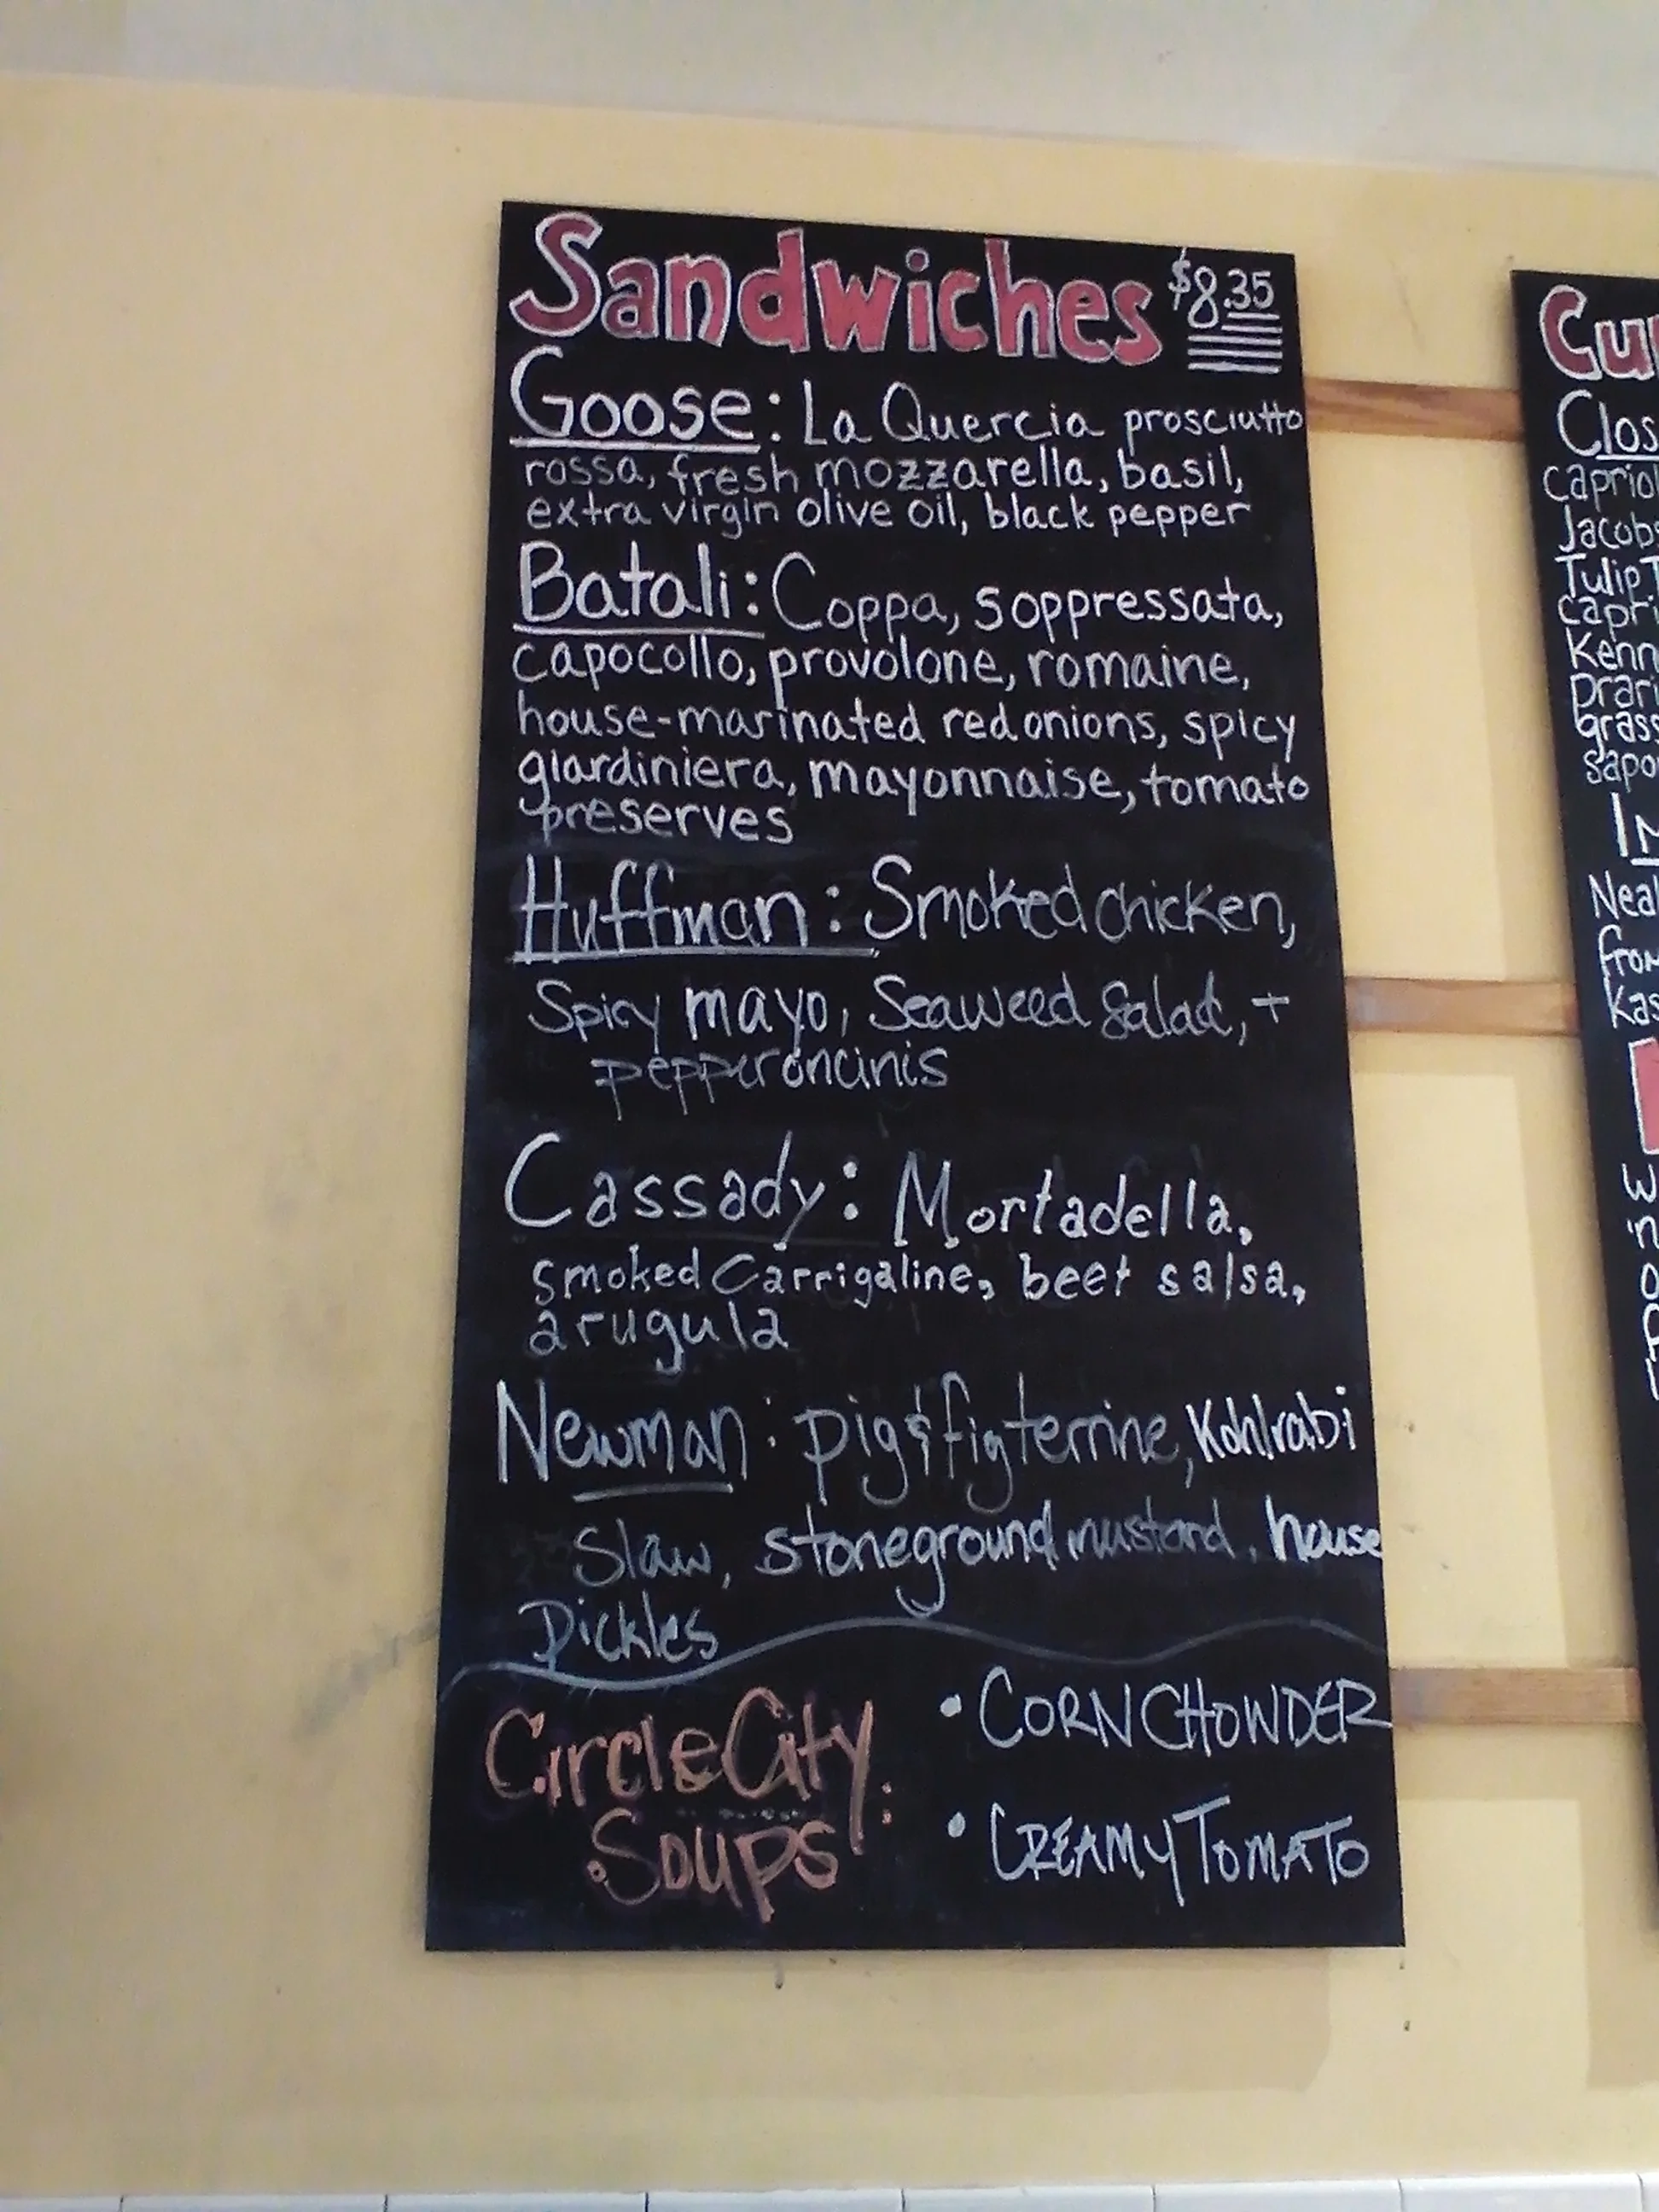 Sandwiches $8.35
Goose: La Quercia prosciutto
rossa, fresh mozzarella, basil,
extra virgin olive oil, black pepper
Batali: Coppa, soppressata,
capocollo, provolone, romaine,
house-marinated red onions, spicy
giardiniera, mayonnaise, tomato
preserves
Huffman: Smoked chicken,
Spicy mayo, Seaweed Salad, +
pepperoncinis
Cassady: Mortadella,
smoked Carrigaline, beet salsa,
arugula
Newman: pig & fig terrine, Kohlrabi
Slaw, stoneground mustard, house
Pickles
Circle City
Soups:
• CORN CHOWDER
• CREAMY TOMATO
Cu
Clos
Capriol
Jacobs
Tulip T
Capri
Kenn
Prari
grass
Sapo
Neal
from
Kas